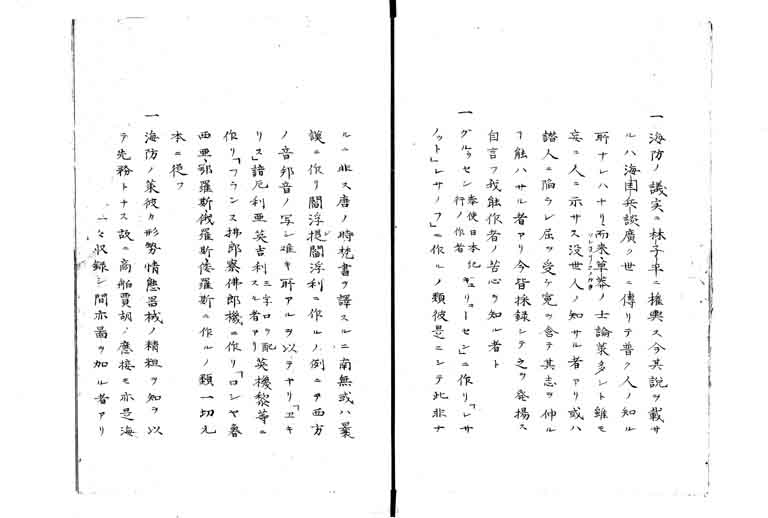 一 海防ノ議実ニ林子平ニ権輿ス今其説ヲ載サ
ルハ海国兵談廣ク世ニ傳リテ普ク人ノ知ル
所ナレハナリ而来草莽ノ士論策多シト雖モ
妄ニ人ニ示サス没世人ノ知サル者アリ或ハ
讒人ニ陥ラレ屈ヲ受ケ冤ヲ含テ其志ヲ伸ル
ヿ能ハサル者アリ今皆採録シテ之ヲ發揚ス
自言フ我能作者ノ苦心ヲ知ル者ト
一 グルウセン奉使日本紀行ノ作者「ギュリユーセン」ニ作リ「レサ
ノット」レサノフ」ニ作ルノ類彼是ニシテ此非ナ
ルニ非ス唐ノ時梵書ヲ譯スルニ南無或ハ曩
謨ニ作リ閻浮提閻浮利ニ作ルノ例ニテ西方
ノ音邦音ノ写シ難キ所アルヲ以テヤリ「エキ
リス」諳厄利亜英吉利三字口ヲ配スル者アリ英機黎等ニ
作リ「フランス拂郎察佛郎機ニ作リ「ロシヤ魯
西亜鄂羅斯俄羅斯倭羅斯ニ作ルノ類一切元
本ニ従フ
一 海防ノ策彼カ形勢情態器械ノ精粗ヲ知ヲ以
テ先務トナス故ニ商舶賈胡ノ應接モ亦是海
々収録シ間亦圖ヲ加ル者アリ